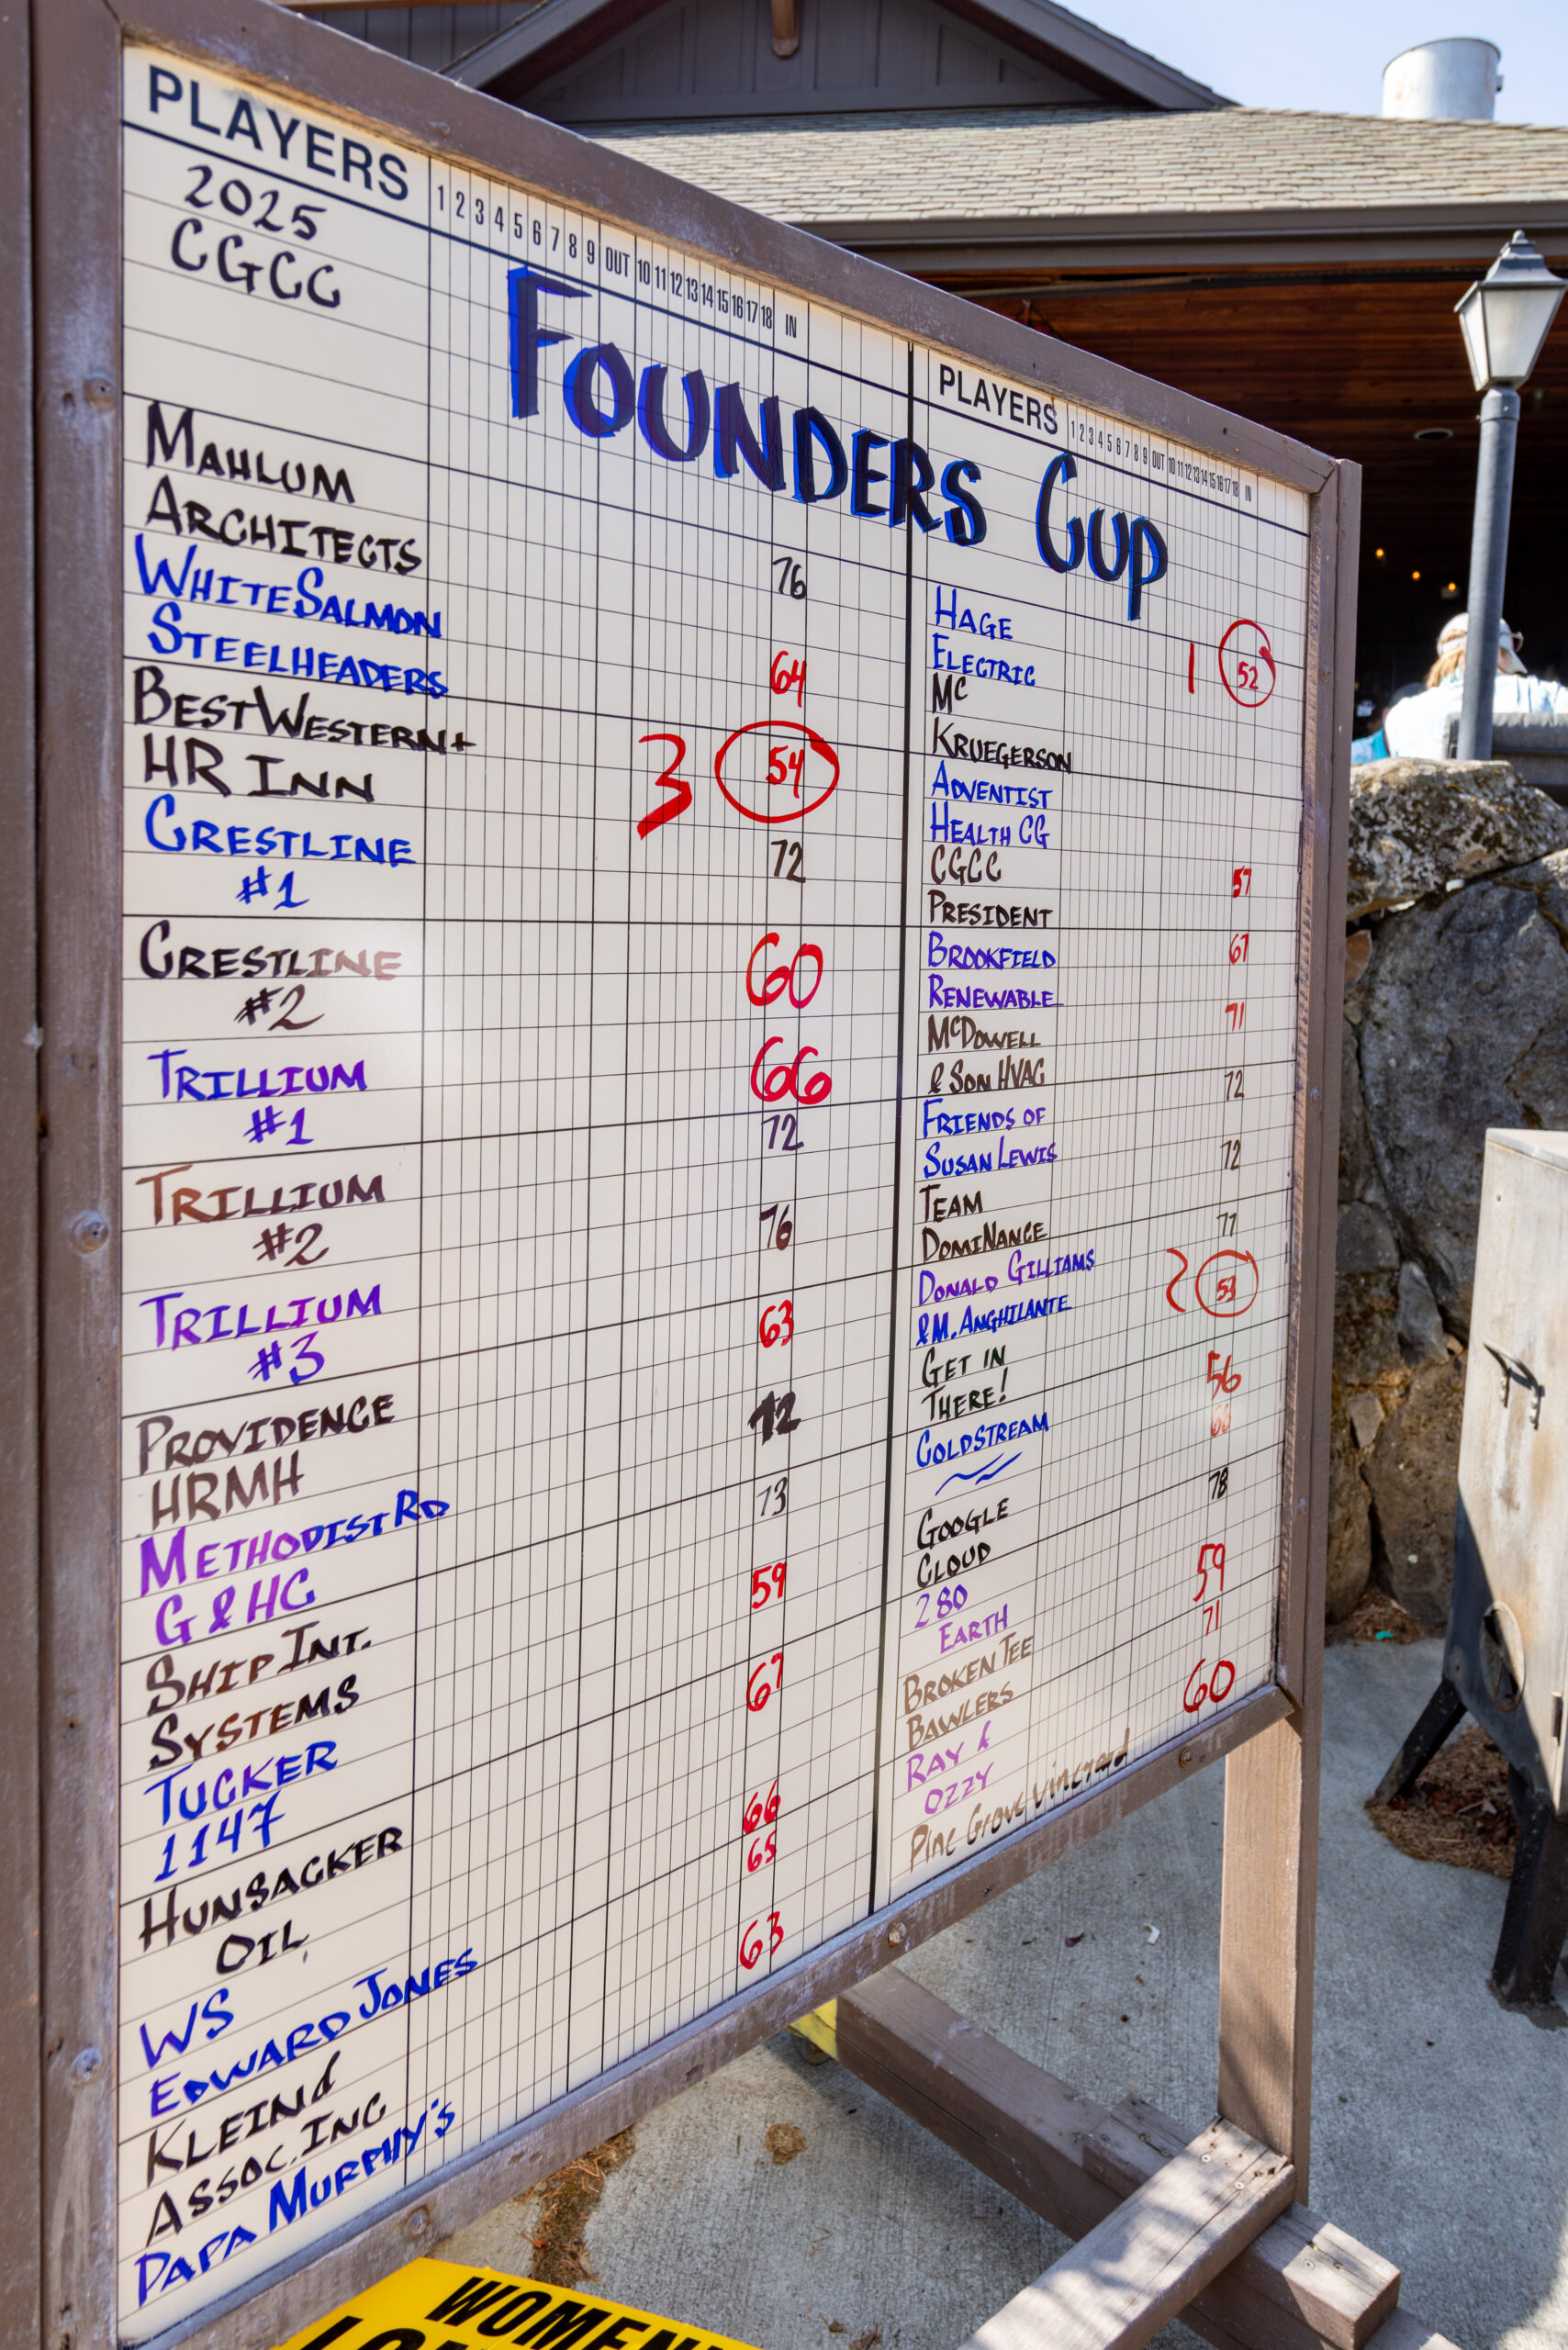 PLAYERS
1 2 3 4 5 6 7 8 9 OUT 10 11 12 13 14 15 16 17 18 IN
2025
CGCC
FOUNDERS CUP
MAHLUM
ARCHITECTS
76
WHITE SALMON
STEELHEADERS
64
BEST WESTERN+
HR INN
3 54
CRESTLINE
#1
72
CRESTLINE
#2
60
TRILLIUM
#1
66
72
TRILLIUM
#2
76
TRILLIUM
#3
63
PROVIDENCE
HRMH
72
METHODIST RD
G & HC
73
SHIP INT.
SYSTEMS
59
TUCKER
1147
67
HUNSACKER
OIL
66
WS
65
EDWARD JONES
KLEIN &
ASSOC. INC
63
PAPA MURPHY'S
PLAYERS
1 2 3 4 5 6 7 8 9 OUT 10 11 12 13 14 15 16 17 18 IN
HAGE
ELECTRIC
1 52
MC
KRUEGERSON
ADVENTIST
HEALTH CG
57
CGCC
PRESIDENT
67
BROOKFIELD
RENEWABLE
71
MCDOWELL
& SON HVAC
72
FRIENDS OF
SUSAN LEWIS
72
TEAM
DOMINANCE
77
DONALD GILLIAMS
& M. ANGHILANTE
2 53
GET IN
THERE!
56
COLDSTREAM
66
GOOGLE
CLOUD
78
280
EARTH
59
BROKEN TEE
BAWLERS
71
RAY &
OZZY
60
Pine Grove Vineyard
WOMEN